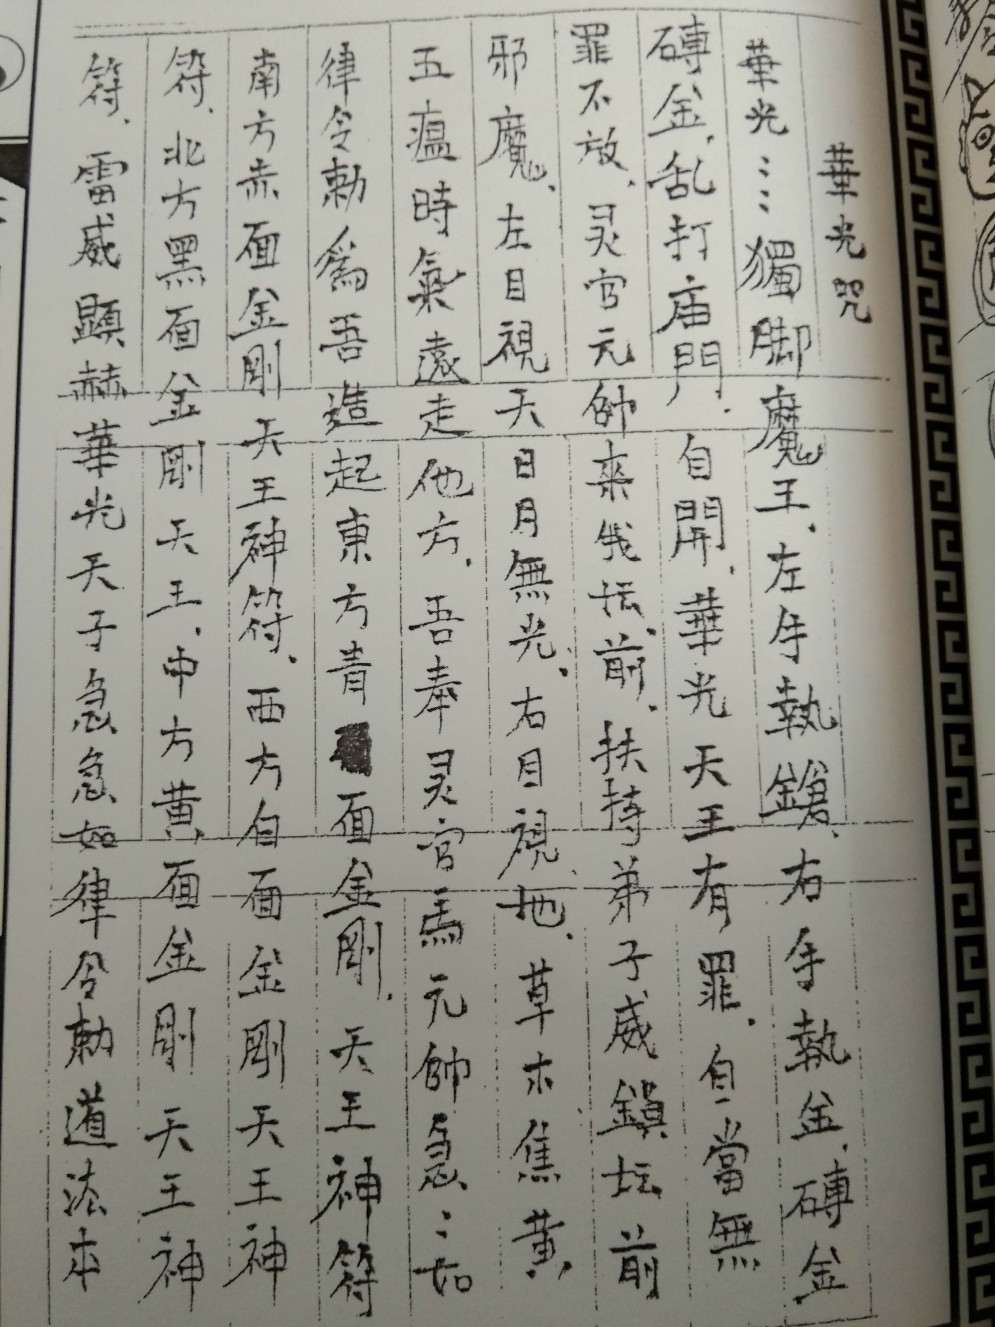 華光咒
華光⋮⋮獨脚魔王、左手執鎗、右手執金、磚金
磚金、乱打庙門、自開、華光天王有罪、自當無
罪不放、灵官元帥來我坛前、扶持弟子威鎮坛前
邪魔、左目視天日月無光、右目視地、草木焦黄
五瘟時氣遠走他方、吾奉灵官馬元帥急⋮如
律令勅為吾造起東方青面金剛、天王神符
南方赤面金剛天王神符、西方白面金剛天王神
符、北方黑面金剛天王、中方黄面金剛天王神
符、雷威顯赫華光天子急急如律令勅道法本